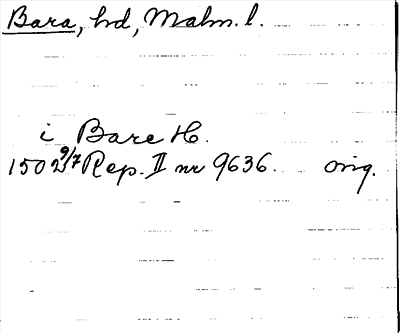 Bara, hd, Malm. l.
i Bare H.
1502 9/7 Rep. II nr 9636. orig.